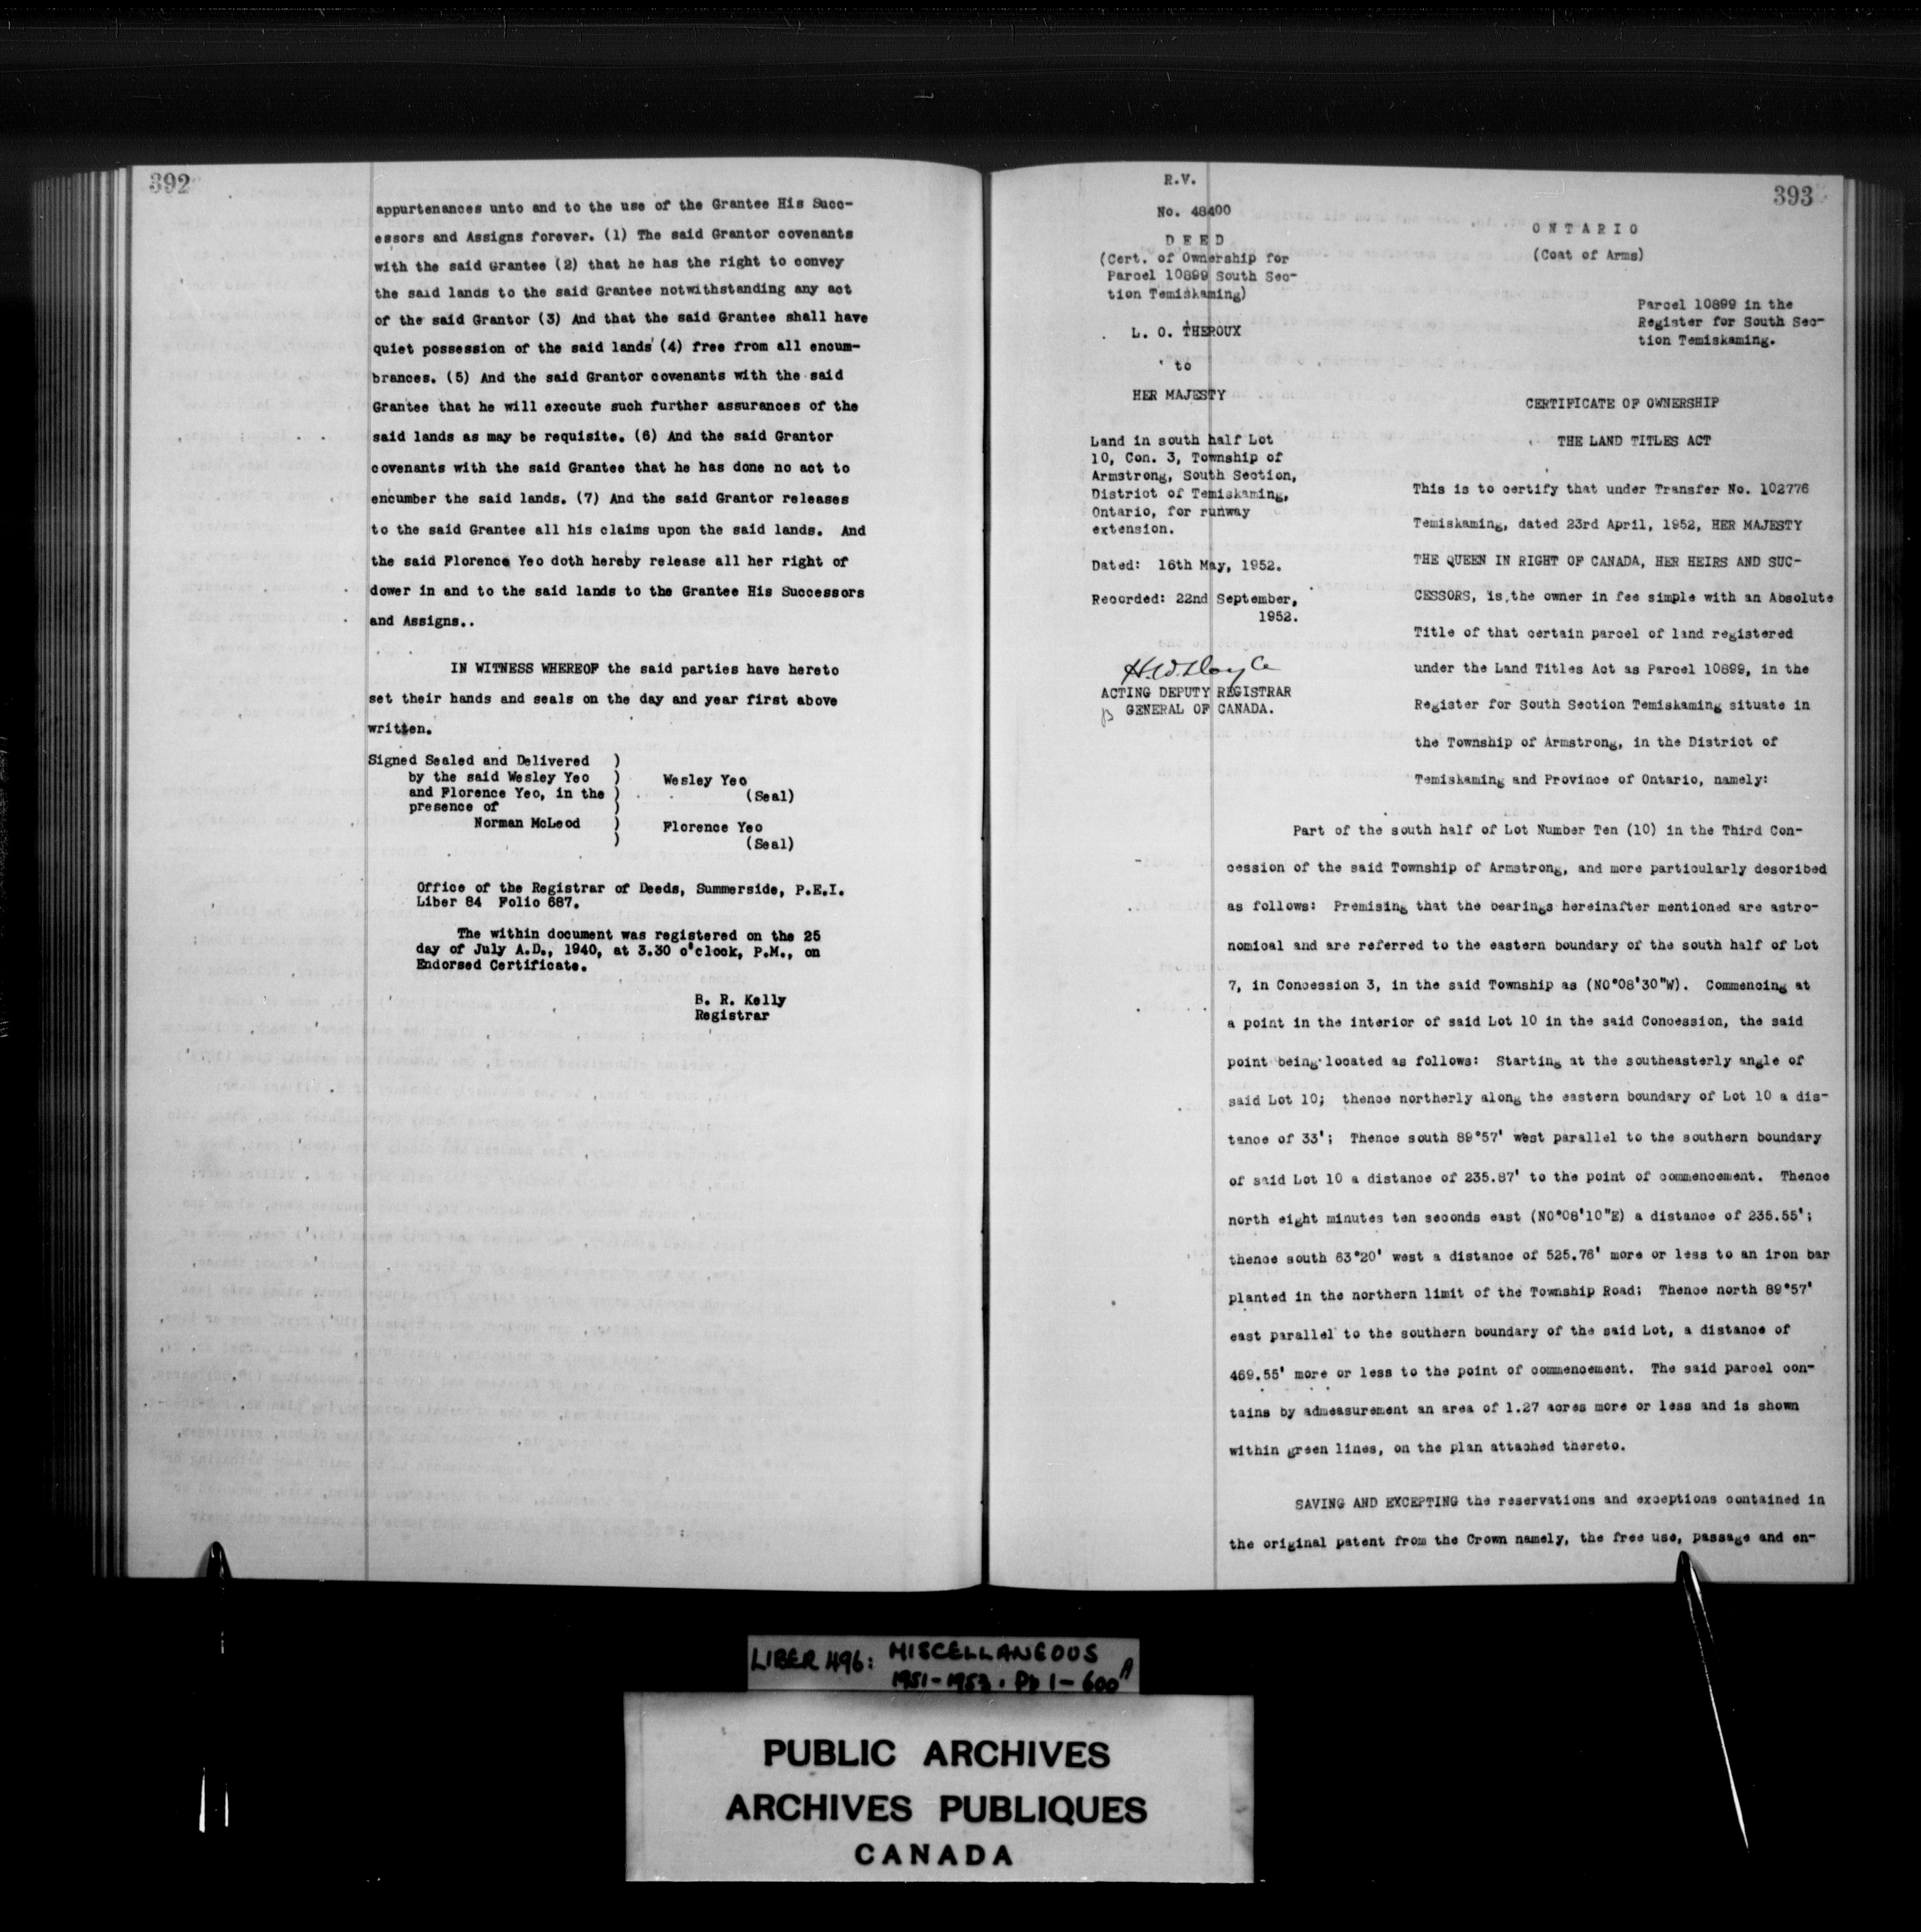 392
appurtenances unto and to the use of the Grantee His Succ-
essors and Assigns forever. (1) The said Grantor covenants
with the said Grantee (2) that he has the right to convey
the said lands to the said Grantee notwithstanding any act
of the said Grantor (3) And that the said Grantee shall have
quiet possession of the said lands (4) free from all encum-
brances. (5) And the said Grantor covenants with the said
Grantee that he will execute such further assurances of the
said lands as may be requisite. (6) And the said Grantor
covenants with the said Grantee that he has done no act to
encumber the said lands. (7) And the said Grantor releases
to the said Grantee all his claims upon the said lands. And
the said Florence Yeo doth hereby release all her right of
dower in and to the said lands to the Grantee His Successors
and Assigns..
IN WITNESS WHEREOF the said parties have hereto
set their hands and seals on the day and year first above
written.
Signed Sealed and Delivered )
by the said Wesley Yeo ) Wesley Yeo
and Florence Yeo, in the ) (Seal)
presence of )
Norman McLeod ) Florence Yeo
) (Seal)
Office of the Registrar of Deeds, Summerside, P.E.I.
Liber 84 Folio 687.
The within document was registered on the 25
day of July A.D., 1940, at 3.30 o'clock, P.M., on
Endorsed Certificate.
B. R. Kelly
Registrar
393
R.V.
No. 48400
DEED
(Cert. of Ownership for
Parcel 10899 South Sec-
tion Temiskaming)
L. O. THEROUX
to
HER MAJESTY
Land in south half Lot
10, Con. 3, Township of
Armstrong, South Section,
District of Temiskaming,
Ontario, for runway
extension.
Dated: 16th May, 1952.
Recorded: 22nd September,
1952.
H.W. Doyle
ACTING DEPUTY REGISTRAR
GENERAL OF CANADA.
ONTARIO
(Coat of Arms)
Parcel 10899 in the
Register for South Sec-
tion Temiskaming.
CERTIFICATE OF OWNERSHIP
THE LAND TITLES ACT
This is to certify that under Transfer No. 102776
Temiskaming, dated 23rd April, 1952, HER MAJESTY
THE QUEEN IN RIGHT OF CANADA, HER HEIRS AND SUC-
CESSORS, is the owner in fee simple with an Absolute
Title of that certain parcel of land registered
under the Land Titles Act as Parcel 10899, in the
Register for South Section Temiskaming situate in
the Township of Armstrong, in the District of
Temiskaming and Province of Ontario, namely:
Part of the south half of Lot Number Ten (10) in the Third Con-
cession of the said Township of Armstrong, and more particularly described
as follows: Premising that the bearings hereinafter mentioned are astro-
nomical and are referred to the eastern boundary of the south half of Lot
7, in Concession 3, in the said Township as (N0°08'30"W). Commencing at
a point in the interior of said Lot 10 in the said Concession, the said
point being located as follows: Starting at the southeasterly angle of
said Lot 10; thence northerly along the eastern boundary of Lot 10 a dis-
tance of 33'; Thence south 89°57' west parallel to the southern boundary
of said Lot 10 a distance of 235.87' to the point of commencement. Thence
north eight minutes ten seconds east (N0°08'10"E) a distance of 235.55';
thence south 63°20' west a distance of 525.76' more or less to an iron bar
planted in the northern limit of the Township Road; Thence north 89°57'
east parallel to the southern boundary of the said Lot, a distance of
469.55' more or less to the point of commencement. The said parcel con-
tains by admeasurement an area of 1.27 acres more or less and is shown
within green lines, on the plan attached thereto.
SAVING AND EXCEPTING the reservations and exceptions contained in
the original patent from the Crown namely, the free use, passage and en-
LIBER 496: MISCELLANEOUS
1951-1953. Pp 1-600A
PUBLIC ARCHIVES
ARCHIVES PUBLIQUES
CANADA